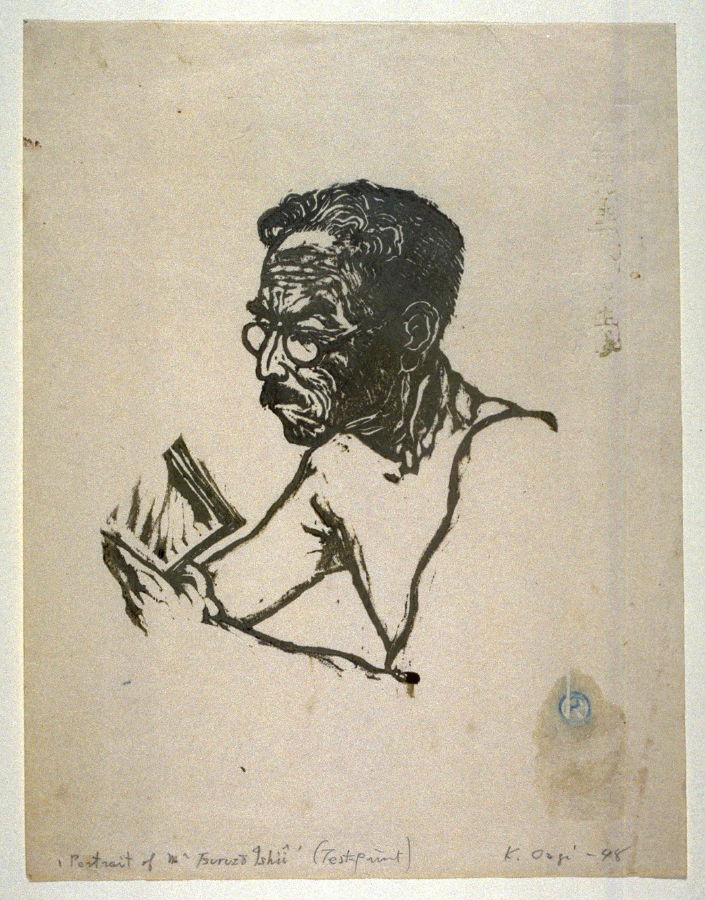 'Portrait of Mr Tsuruzō Ishii' (Test-print) K. Ougi - 48
R